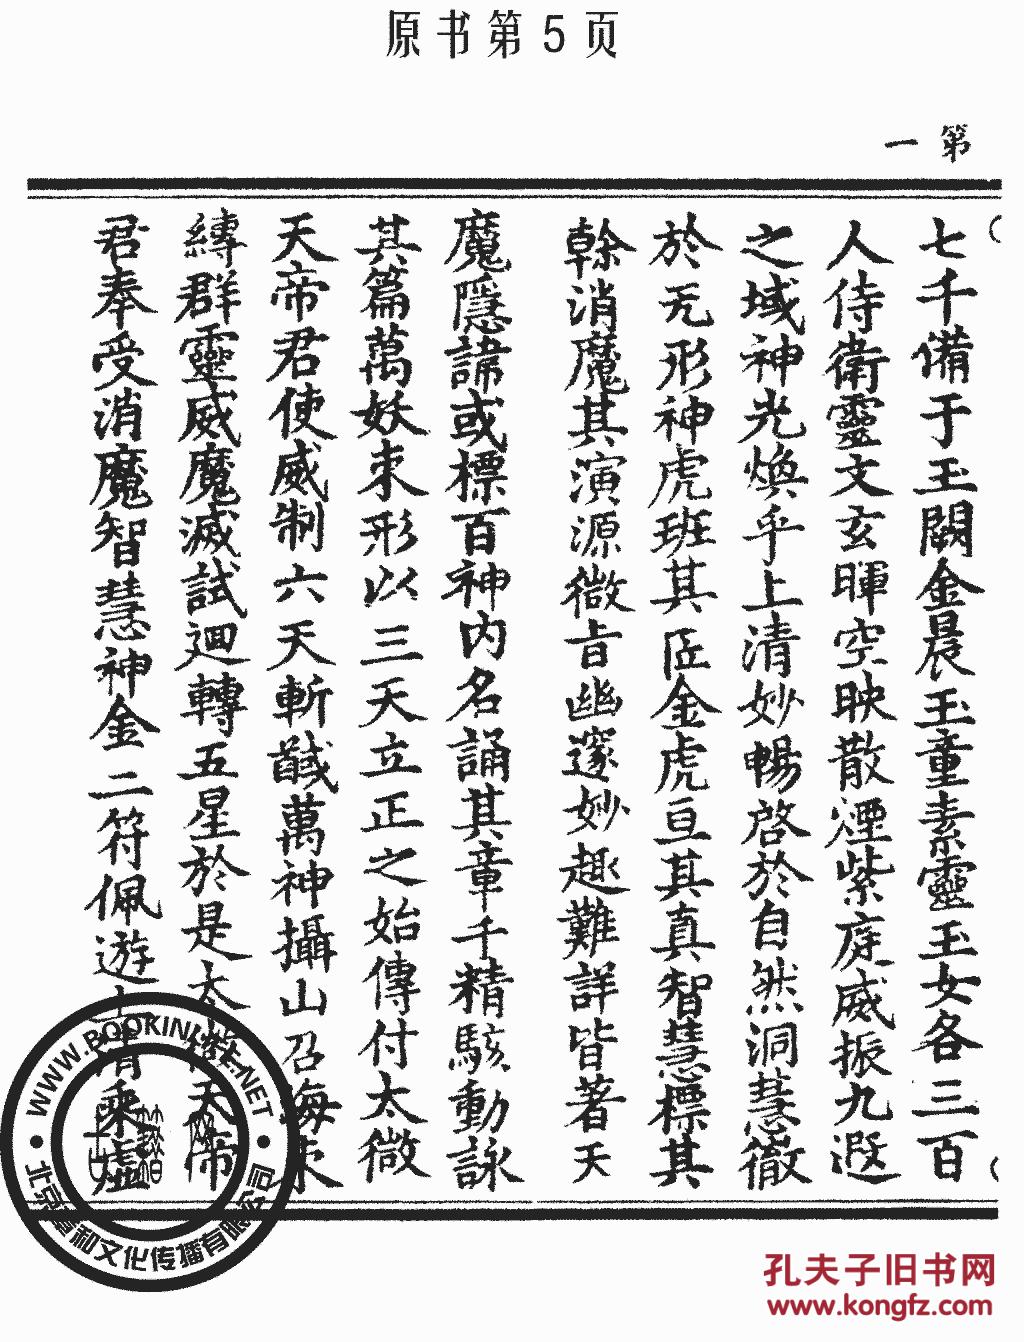 原书第5页
第一
七千備于玉闕金晨玉童素靈玉女各三百
人侍衛靈文玄暉空映散煙紫庭威振九遐
之域神光煥乎上清妙暢啓於自然洞慧徹
於无形神虎班其匠金虎亘其真智慧標其
幹消魔其演源微旨幽邃妙趣難詳皆著天
魔隱諱或標百神內名誦其章千精駭動詠
其篇萬妖束形以三天立正之始傳付太微
天帝君使威制六天斬馘萬神攝山召海束
縛群靈威魔滅試迴轉五星於是太微天帝
君奉受消魔智慧神金二符佩遊上清乘虛
WWW.BOOKINLIFE.NET
文化传播有限公司
孔夫子旧书网
www.kongfz.com